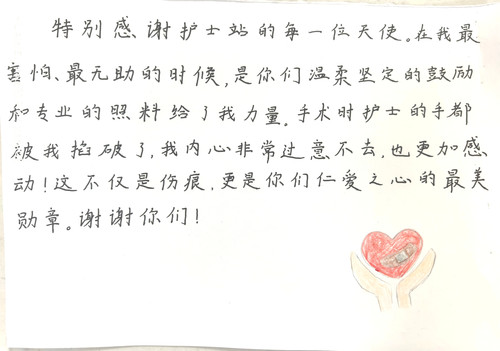 特别感谢护士站的每一位天使。在我最
害怕、最无助的时候,是你们温柔坚定的鼓励
和专业的照料给了我力量。手术时护士的手都
被我掐破了,我内心非常过意不去,也更加感
动!这不仅是伤痕,更是你们仁爱之心的最美
勋章。谢谢你们!